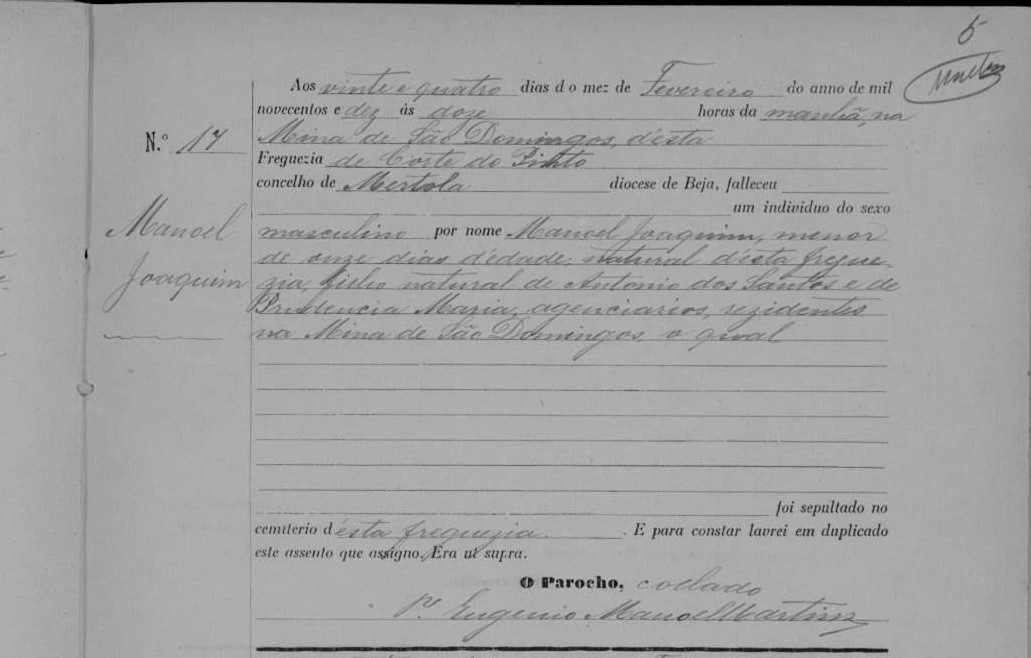 5
Aos vinte e quatro dias d o mez de Fevereiro do anno de mil
novecentos e dez ás doze horas da manhã, na
N.º 17
Mina de São Domingos, d'esta
Freguezia de Corte do Pinto
concelho de Mertola diocese de Beja, falleceu
um individuo do sexo
Manoel
Joaquim
masculino por nome Manoel Joaquim, menor
de onze dias d'edade, natural d'esta fregue-
zia, filho natural de Antonio dos Santos e de
Prudencia Maria, agenciarios, rezidentes
na Mina de São Domingos, o qual
foi sepultado no
cemiterio d'esta freguezia. . E para constar lavrei em duplicado
este assento que assigno. Era ut supra.
O Parocho, collado
P.e Eugenio Manoel Martins